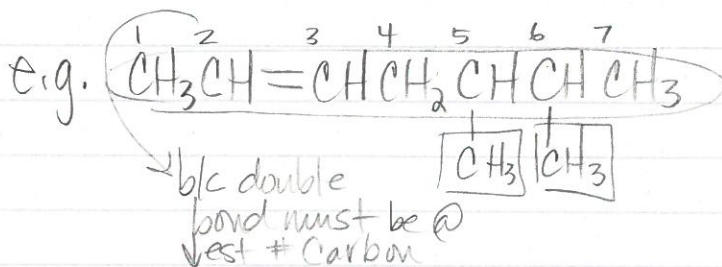 1 2 3 4 5 6 7
e.g. CH₃CH=CHCH₂CHCHCH₃
CH₃ CH₃
b/c double
bond must be @
↓est # Carbon